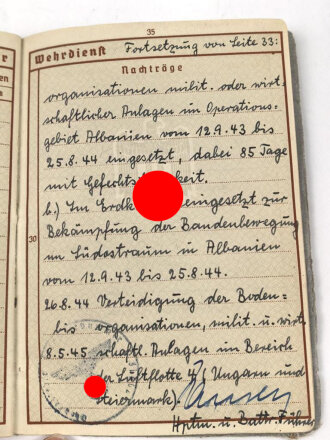 35
Wehrdienst Fortsetzung von Seite 33:
Nachträge
organisationen milit. oder wirt-
schaftlicher Anlagen im Operations-
gebiet Albanien vom 12.9.43 bis
25.8.44 eingesetzt, dabei 85 Tage
mit
b.) Im eingesetzt zur
30
Bekämpfung der Bandenbewegung
im Südostraum in Albanien
vom 12.9.43 bis 25.8.44.
26.8.44 Verteidigung der Boden-
bis organisationen, milit. u. wirt
8.5.45 schaftl. Anlagen im Bereich
der Luftflotte 4, Ungarn und
Steiermark).
Hptm. u. Battr. Führer